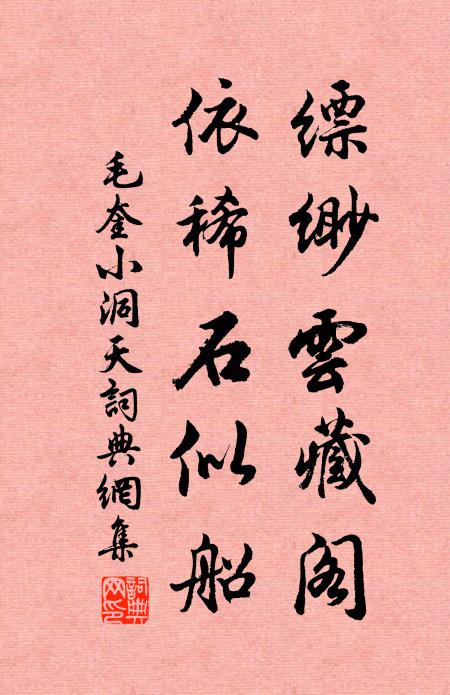 缥缈雲藏阁
依稀石似船
毛奎小洞天詞典網集
詞典網印